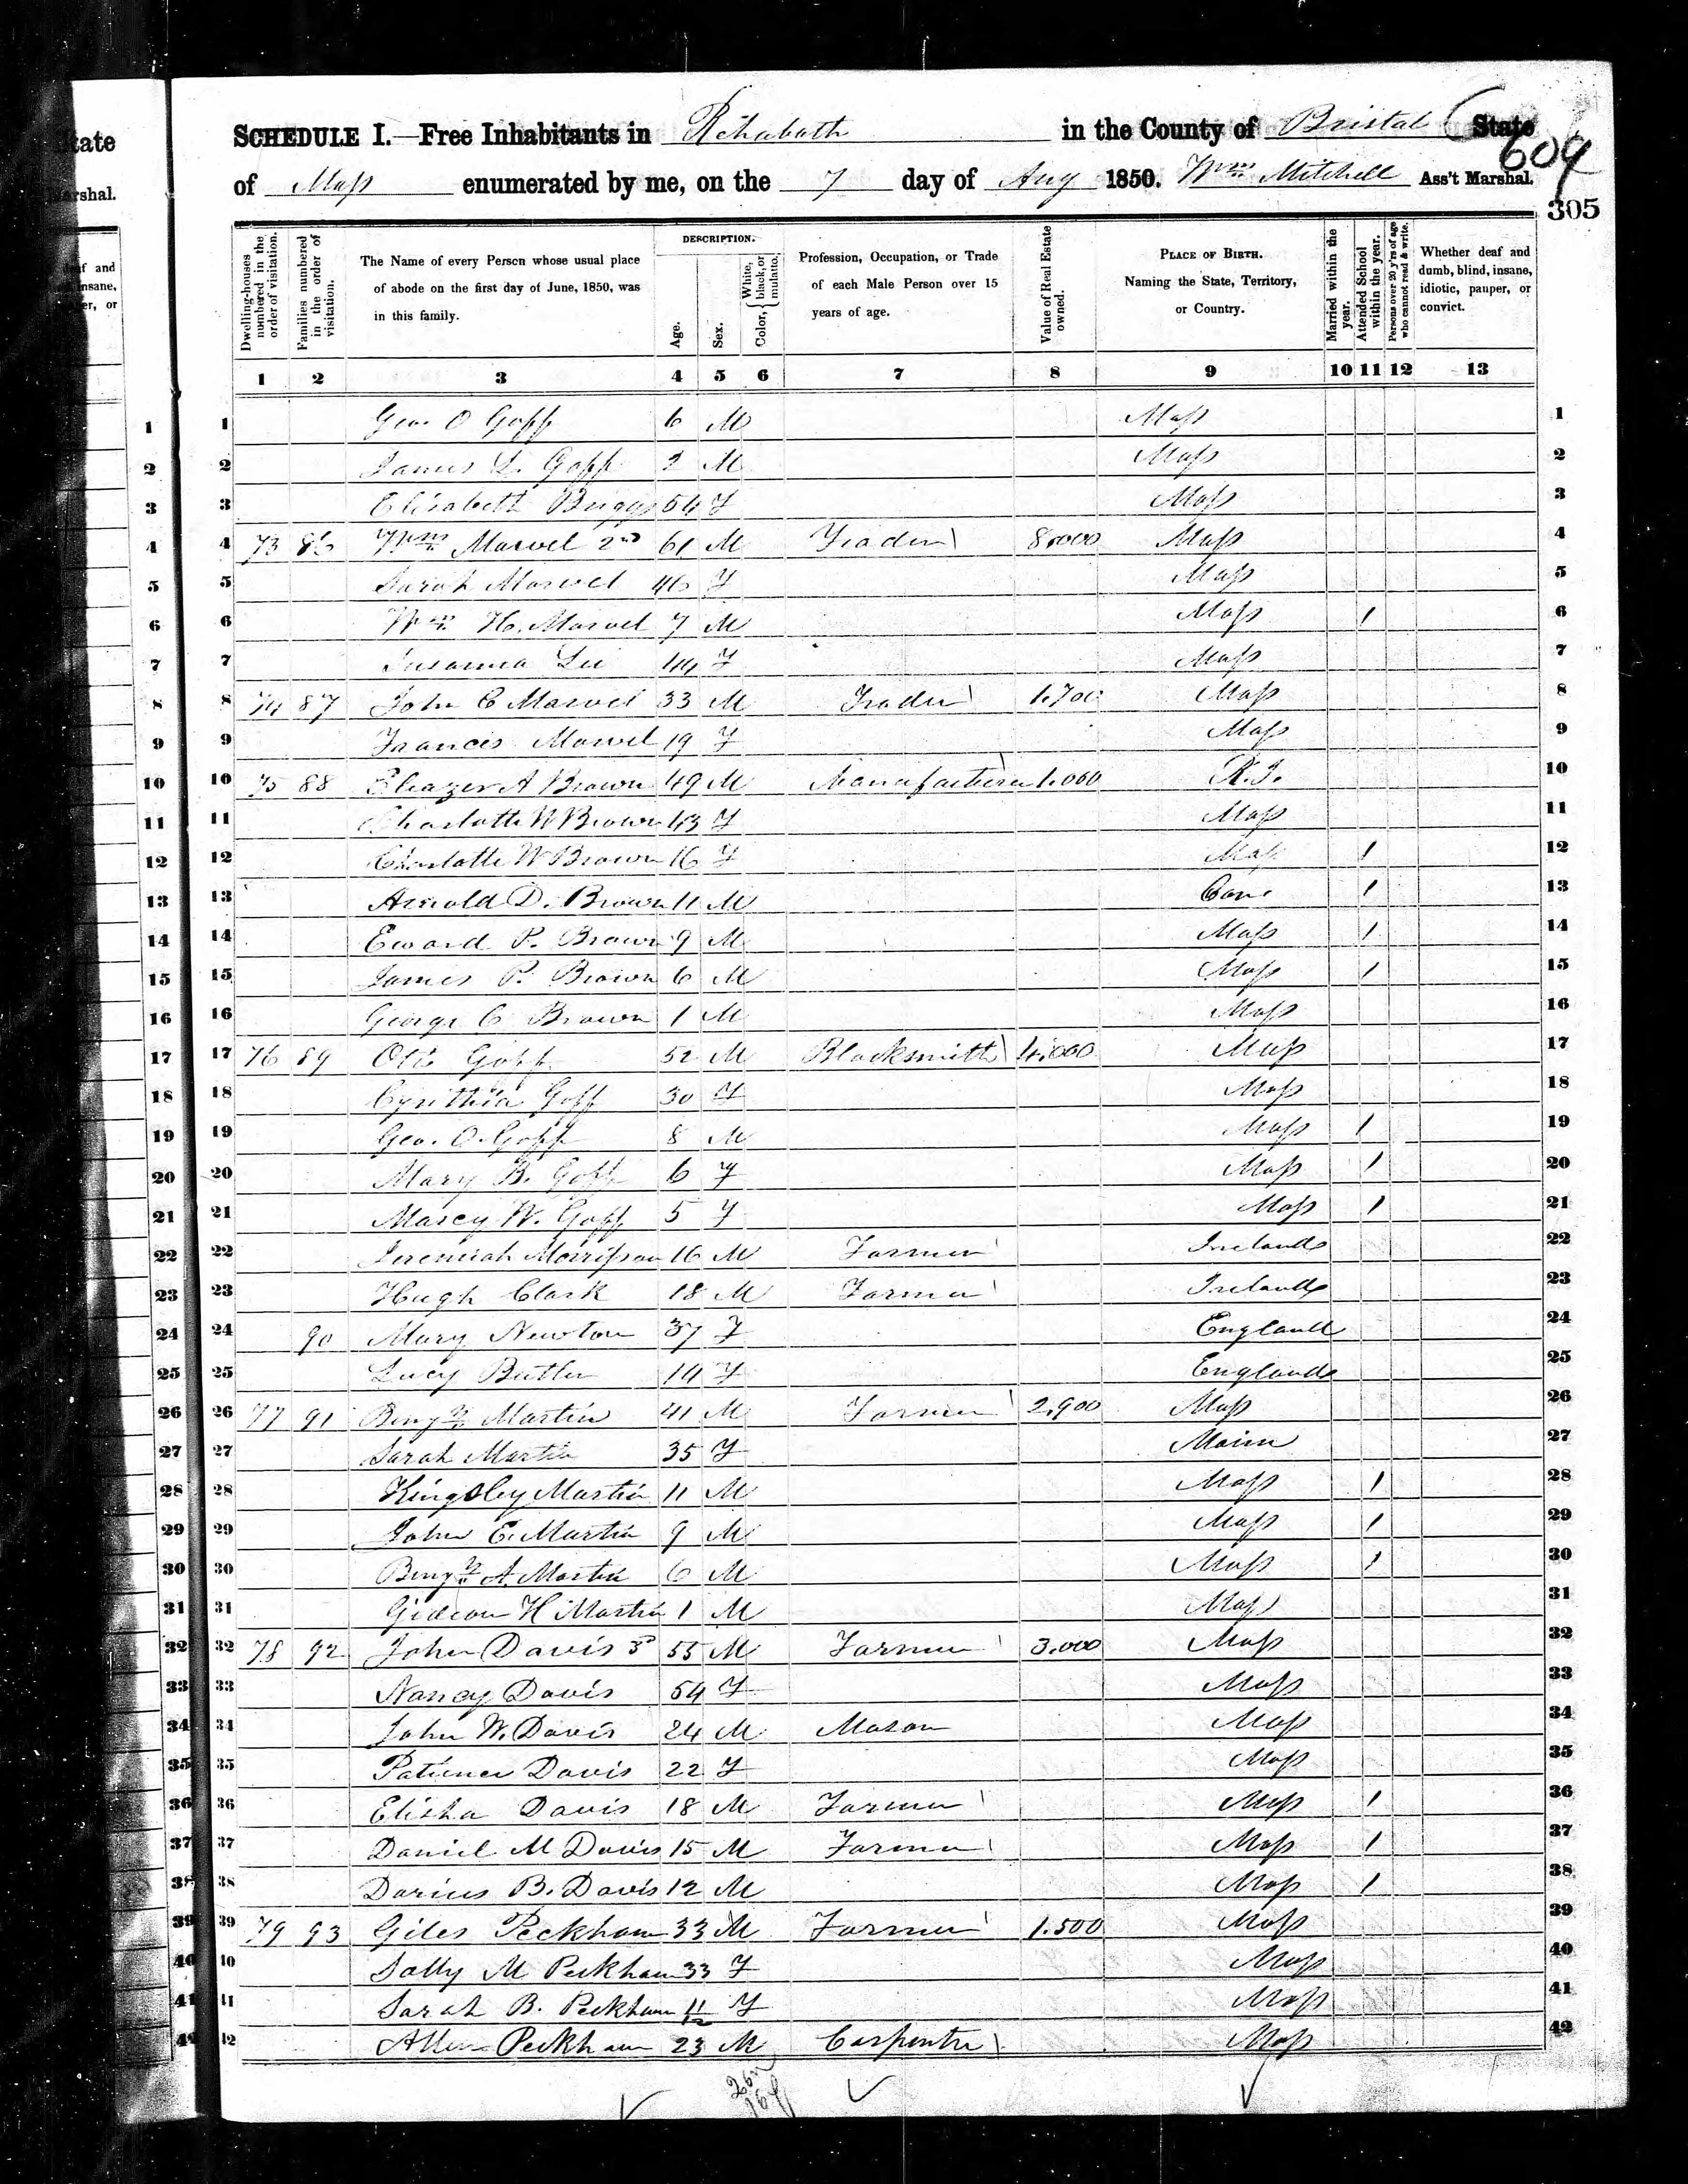 SCHEDULE I.—Free Inhabitants in Rehoboth in the County of Bristol State
609
of Mass enumerated by me, on the 7 day of Aug 1850. Wm Mitchell Ass't Marshal.
305
Dwelling-houses numbered in the order of visitation.
Families numbered in the order of visitation.
The Name of every Person whose usual place of abode on the first day of June, 1850, was in this family.
DESCRIPTION.
Age.
Sex.
Color, { White, black, or mulatto.
Profession, Occupation, or Trade of each Male Person over 15 years of age.
Value of Real Estate owned.
PLACE OF BIRTH. Naming the State, Territory, or Country.
Married within the year.
Attended School within the year.
Persons over 20 y'rs of age who cannot read & write.
Whether deaf and dumb, blind, insane, idiotic, pauper, or convict.
1 2 3 4 5 6 7 8 9 10 11 12 13
1 Geo. O Goff 6 M Mass 1
2 James L. Goff 2 M Mass 2
3 Elizabeth Briggs 54 F Mass 3
4 73 86 Wm Marvel 2nd 61 M Trader 8.000 Mass 4
5 Sarah Marvel 46 F Mass 5
6 Wm H. Marvel 7 M Mass 1 6
7 Susanna Lee 44 F Mass 7
8 74 87 John C Marvel 33 M Trader 1.700 Mass 8
9 Frances Marvel 19 F Mass 9
10 75 88 Eleazer A Brown 49 M Manufacturer 1.000 R.I. 10
11 Charlotte W Brown 43 F Mass 11
12 Charlotte W Brown 16 F Mass 1 12
13 Arnold D. Brown 11 M Conn 1 13
14 Eward P. Brown 9 M Mass 1 14
15 James P. Brown 6 M Mass 1 15
16 George C Brown 1 M Mass 16
17 76 89 Otis Goff 52 M Blacksmith 4.000 Mass 17
18 Cynthia Goff 30 F Mass 18
19 Geo. O. Goff 8 M Mass 1 19
20 Mary B. Goff 6 F Mass 1 20
21 Marcy W. Goff 5 F Mass 1 21
22 Jeremiah Morrisson 16 M Farmer Ireland 22
23 Hugh Clark 18 M Farmer Ireland 23
24 90 Mary Newton 37 F England 24
25 Lucy Butler 14 F England 25
26 77 91 Benjn Martin 41 M Farmer 2.900 Mass 26
27 Sarah Martin 35 F Maine 27
28 Kingsley Martin 11 M Mass 1 28
29 John E. Martin 9 M Mass 1 29
30 Benjn A. Martin 6 M Mass 1 30
31 Gideon H Martin 1 M Mass 31
32 78 92 John Davis 3d 55 M Farmer 3.000 Mass 32
33 Nancy Davis 54 F Mass 33
34 John W. Davis 24 M Mason Mass 34
35 Patience Davis 22 F Mass 35
36 Elisha Davis 18 M Farmer Mass 1 36
37 Daniel M Davis 15 M Farmer Mass 1 37
38 Darius B. Davis 12 M Mass 1 38
39 79 93 Giles Peckham 33 M Farmer 1.500 Mass 39
40 Sally M Peckham 33 F Mass 40
41 Sarah B. Peckham 11/12 F Mass 41
42 Allen Peckham 23 M Carpenter Mass 42